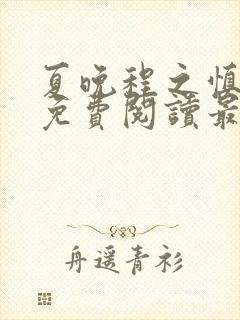 夏晚程之慎
免費閱讀最
舟遥青衫